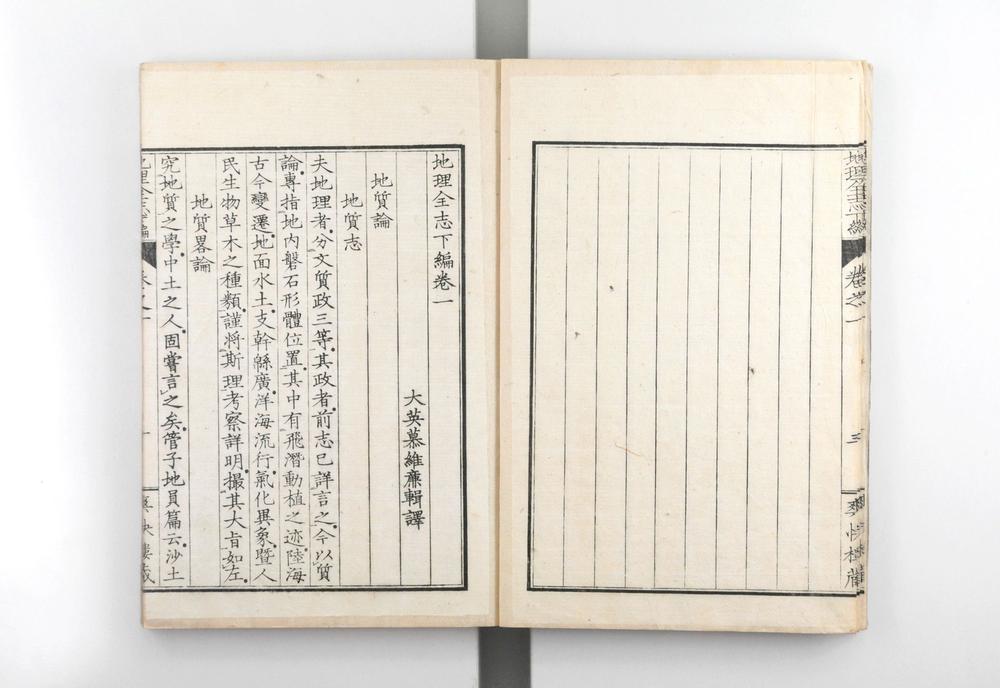 地理全志下編
卷之一
三
爽快樓藏
地理全志下編卷一
大英慕維廉輯譯
地質論
地質志
夫地理者分文質政三等其政者前志已詳言之今以質
論專指地內磐石形體位置其中有飛潛動植之迹陸海
古今變遷地面水土支幹緜廣洋海流行氣化異象暨人
民生物草木之種類謹將斯理考察詳明撮其大旨如左
地質畧論
究地質之學中土之人固嘗言之矣管子地員篇云沙土
地理全志下編
卷之一
一
爽快樓藏